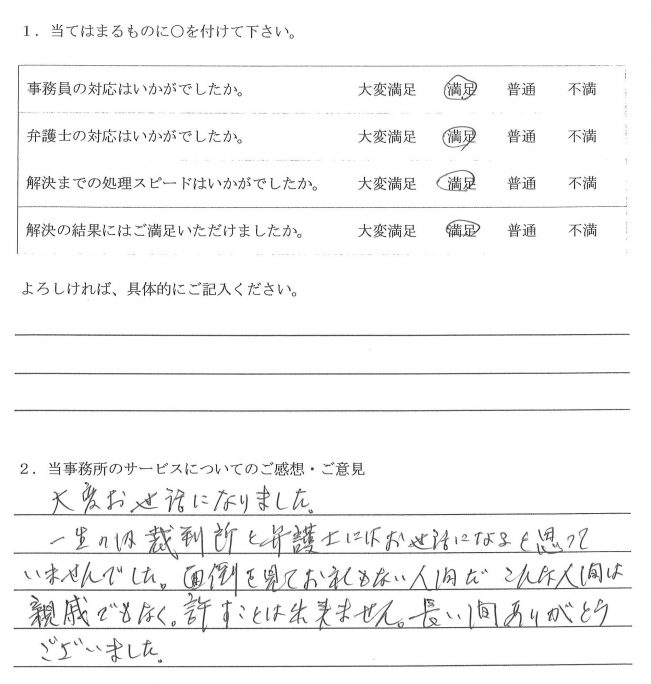 1．当てはまるものに○を付けて下さい。
事務員の対応はいかがでしたか。 大変満足 満足 普通 不満
弁護士の対応はいかがでしたか。 大変満足 満足 普通 不満
解決までの処理スピードはいかがでしたか。 大変満足 満足 普通 不満
解決の結果にはご満足いただけましたか。 大変満足 満足 普通 不満
よろしければ、具体的にご記入ください。
2．当事務所のサービスについてのご感想・ご意見
大変お世話になりました。
一生の内裁判所と弁護士にはお世話になると思って
いませんでした。面倒を見てお礼もない人間だ こんな人間は
親戚でもなく。許すことは出来ません。長い間ありがとう
ございました。